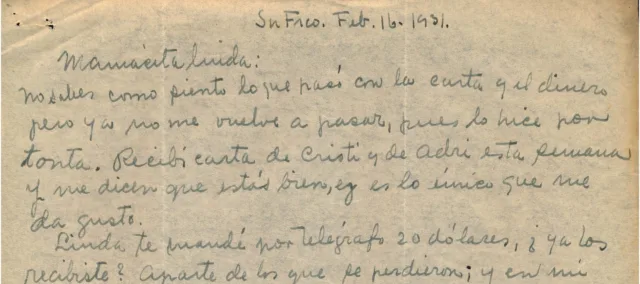 Sn Frco. Feb. 16. 1931.
Mamacita linda:
no sabes como siento lo que pasó con la carta y el dinero
pero ya no me vuelve a pasar, pues lo hice por
tonta. Recibí carta de Cristi y de Adri esta semana
y me dicen que estás bien, y es lo único que me
da gusto.
Linda te mandé por telégrafo 20 dólares, ¿ya los
recibiste? aparte de los que se perdieron; y en mi